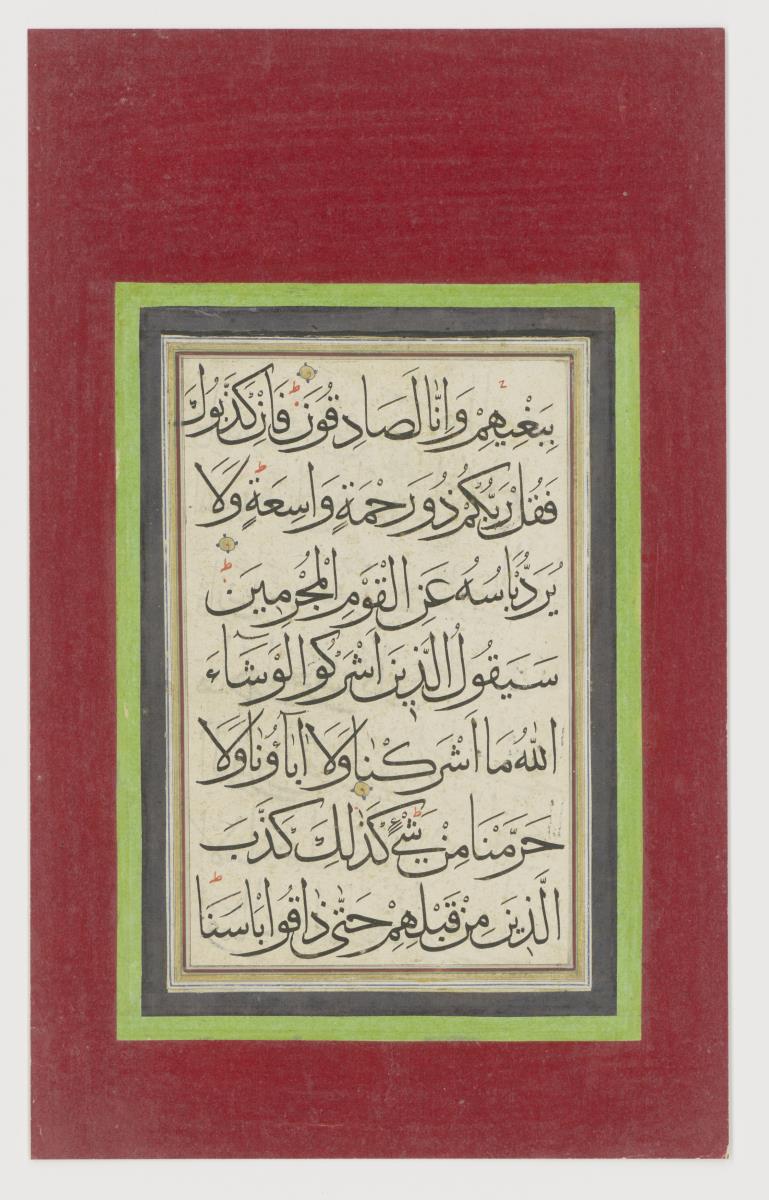 بِبَغْيِهِمْ وَاِنَّا لَصَادِقُونَ فَاِنْ كَذَّبُوكَ
فَقُلْ رَبُّكُمْ ذُو رَحْمَةٍ وَاسِعَةٍ وَلَا
يُرَدُّ بَاْسُهُ عَنِ الْقَوْمِ الْمُجْرِمِينَ
سَيَقُولُ الَّذِينَ اَشْرَكُوا لَوْ شَاءَ
اللّٰهُ مَا اَشْرَكْنَا وَلَا اٰبَاؤُنَا وَلَا
حَرَّمْنَا مِنْ شَيْءٍ كَذٰلِكَ كَذَّبَ
الَّذِينَ مِنْ قَبْلِهِمْ حَتّٰى ذَاقُوا بَاْسَنَا